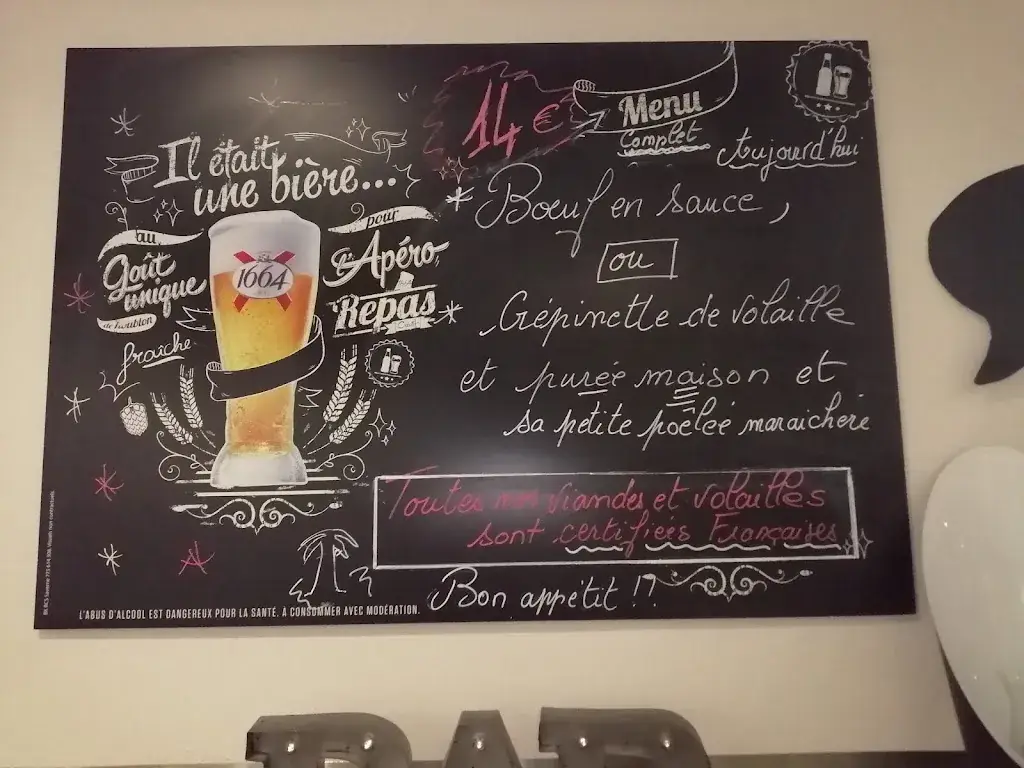 Il était
une bière...
au
Goût
unique
de houblon
fraîche
1664
pour
l'Apéro,
Repas
14 €
Menu
Complet
Aujourd'hui
* Bœuf en sauce,
ou
Crépinette de volaille
et purée maison et
sa petite poêlée maraichère
Toutes nos viandes et volailles
sont certifiées Françaises
Bon appétit !!
L'ABUS D'ALCOOL EST DANGEREUX POUR LA SANTÉ. À CONSOMMER AVEC MODÉRATION.
BAR